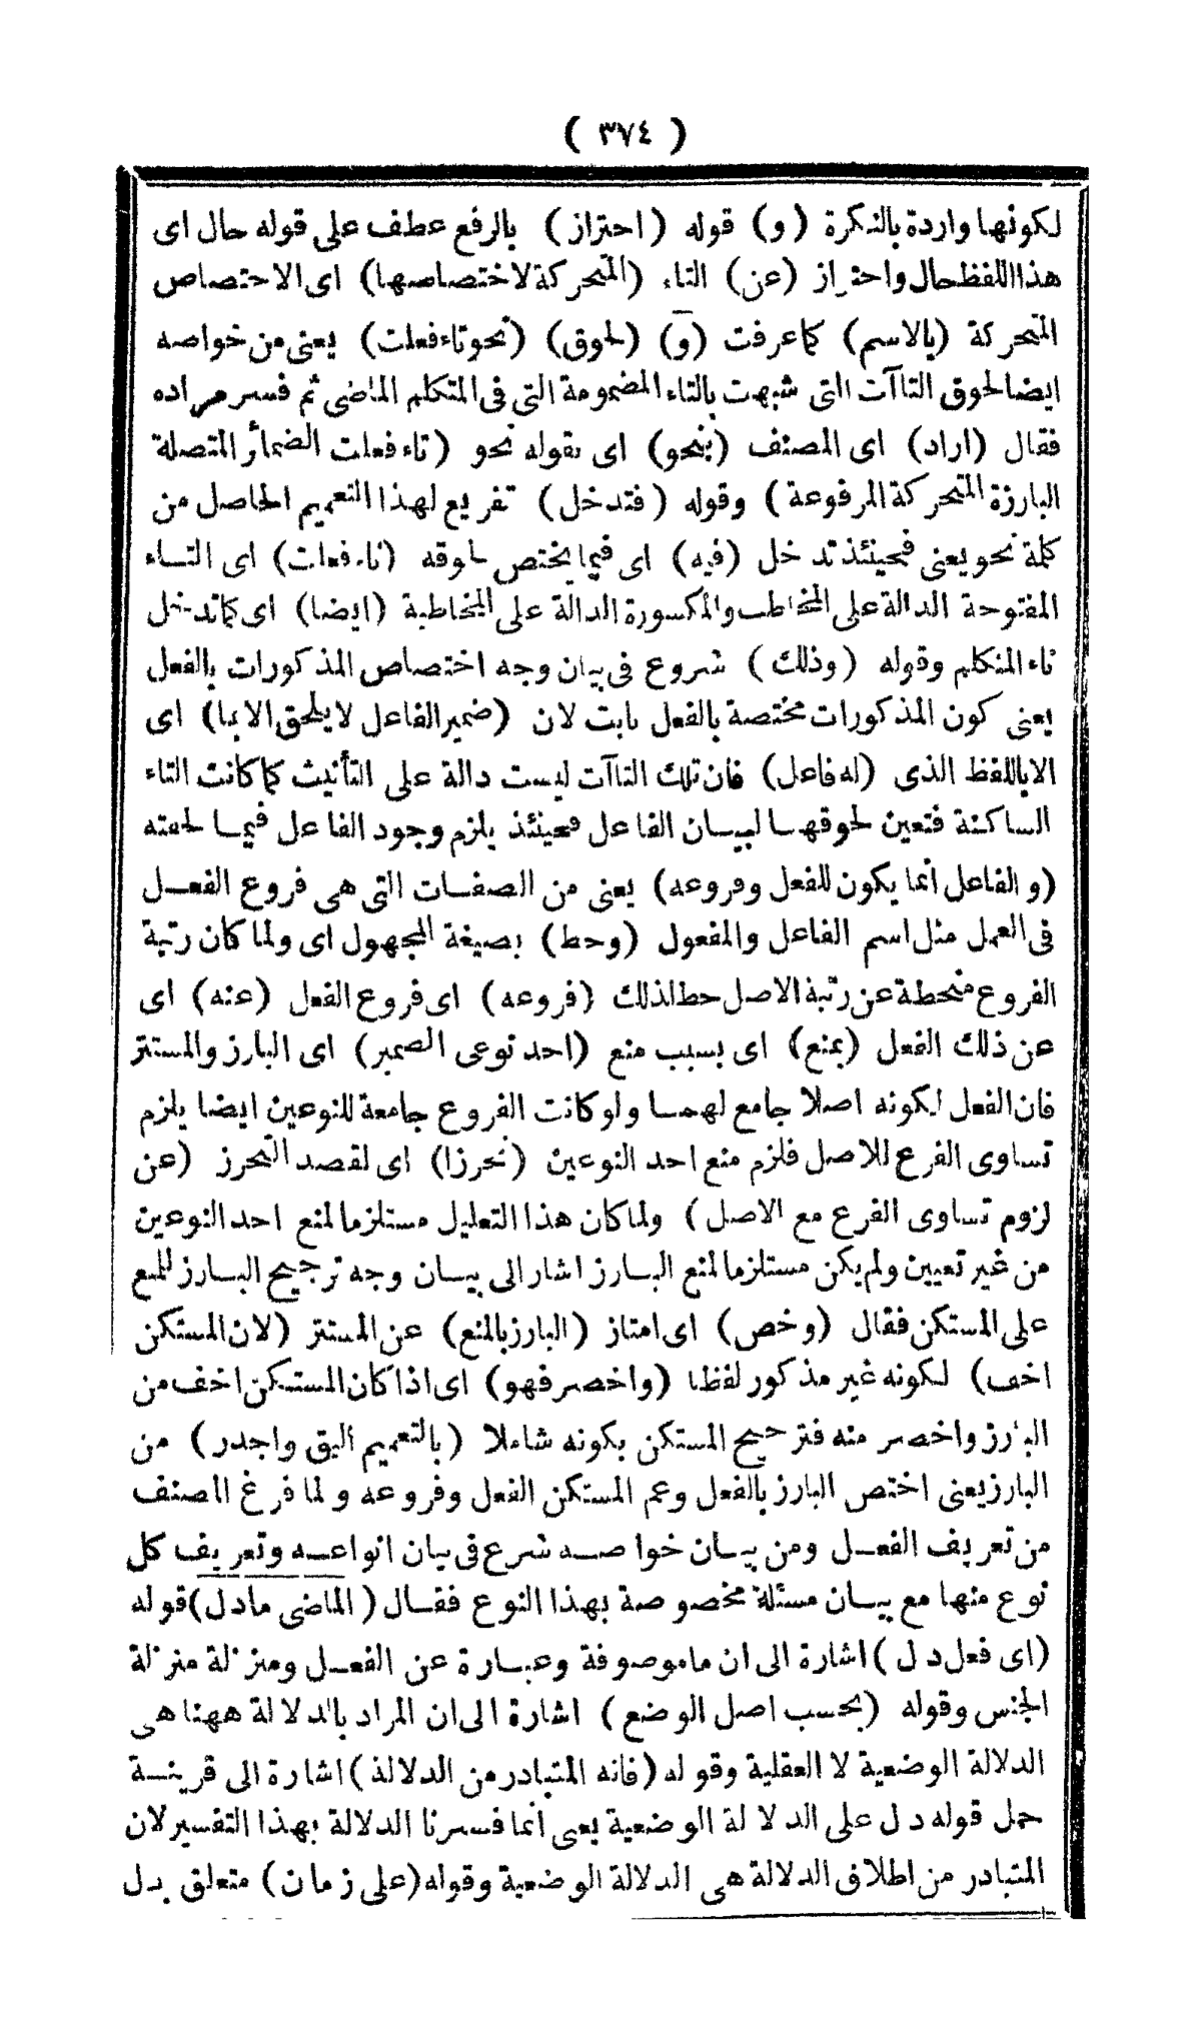 ( ٣٧٤ )
لكونها واردة بالنكرة (و) قوله (احتراز) بالرفع عطف على قوله حال اى
هذا اللفظ حال واحتراز (عن) التاء (المتحركة لاختصاصها) اى الاختصاص
المتحركة (بالاسم) كما عرفت (و) (لحوق) (نحو تاء فعلت) يعنى من خواصه
ايضا لحوق التاآت التى شبهت بالتاء المضمومة التى فى المتكلم الماضى ثم فسر مراده
فقال (اراد) اى المصنف (بنحو) اى بقوله نحو (تاء فعلت الضمائر المتصلة
البارزة المتحركة المرفوعة) وقوله (فتدخل) تفريع لهذا التعميم الحاصل من
كلمة نحو يعنى فحينئذ تدخل (فيه) اى فيما يختص لحوقه (تاء فعلت) اى التاء
المفتوحة الدالة على المخاطب والمكسورة الدالة على المخاطبة (ايضا) اى كما تدخل
تاء المتكلم وقوله (وذلك) شروع فى بيان وجه اختصاص المذكورات بالفعل
يعنى كون المذكورات مختصة بالفعل ثابت لان (ضمير الفاعل لا يلحق الا بما) اى
الا باللفظ الذى (له فاعل) فان تلك التاآت ليست دالة على التأنيث كما كانت التاء
الساكنة فتعين لحوقها لبيان الفاعل فحينئذ يلزم وجود الفاعل فيما لحقته
(والفاعل انما يكون للفعل وفروعه) يعنى من الصفات التى هى فروع الفعل
فى العمل مثل اسم الفاعل والمفعول (وحط) بصيغة المجهول اى ولما كان رتبة
الفروع منحطة عن رتبة الاصل حط لذلك (فروعه) اى فروع الفعل (عنه) اى
عن ذلك الفعل (بمنع) اى بسبب منع (احد نوعى الضمير) اى البارز والمستتر
فان الفعل لكونه اصلا جامع لهما ولو كانت الفروع جامعة للنوعين ايضا يلزم
تساوى الفرع للاصل فلزم منع احد النوعين (تحرزا) اى لقصد التحرز (عن
لزوم تساوى الفرع مع الاصل) ولما كان هذا التعليل مستلزما لمنع احد النوعين
من غير تعيين ولم يكن مستلزما لمنع البارز اشار الى بيان وجه ترجيح البارز للمنع
على المستكن فقال (وخص) اى امتاز (البارز بالمنع) عن المستتر (لان المستكن
اخف) لكونه غير مذكور لفظا (واخصر فهو) اى اذا كان المستكن اخف من
البارز واخصر منه فترجيح المستكن بكونه شاملا (بالتعميم اليق واجدر) من
البارز يعنى اختص البارز بالفعل وعم المستكن الفعل وفروعه ولما فرغ المصنف
من تعريف الفعل ومن بيان خواصه شرع فى بيان انواعه وتعريف كل
نوع منها مع بيان مسئلة مخصوصة بهذا النوع فقال (الماضى ما دل) قوله
(اى فعل دل) اشارة الى ان ما موصوفة وعبارة عن الفعل ومنزلة منزلة
الجنس وقوله (بحسب اصل الوضع) اشارة الى ان المراد بالدلالة ههنا هى
الدلالة الوضعية لا العقلية وقوله (فانه المتبادر من الدلالة) اشارة الى قرينة
حمل قوله دل على الدلالة الوضعية يعنى انما فسرنا الدلالة بهذا التفسير لان
المتبادر من اطلاق الدلالة هى الدلالة الوضعية وقوله (على زمان) متعلق بدل